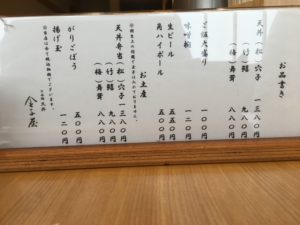 お品書き
天丼(松)穴子 一三八〇円
(竹)鱚 九八〇円
(梅)舞茸 八八〇円
ご飯大盛り 一〇〇円
味噌椀
生ビール 五五〇円
角ハイボール 五五〇円
お土産
天丼弁当(松)穴子 一三八〇円
(竹)鱚 九八〇円
(梅)舞茸 八八〇円
がりごぼう 五〇〇円
揚げ玉 一二〇円
金子屋